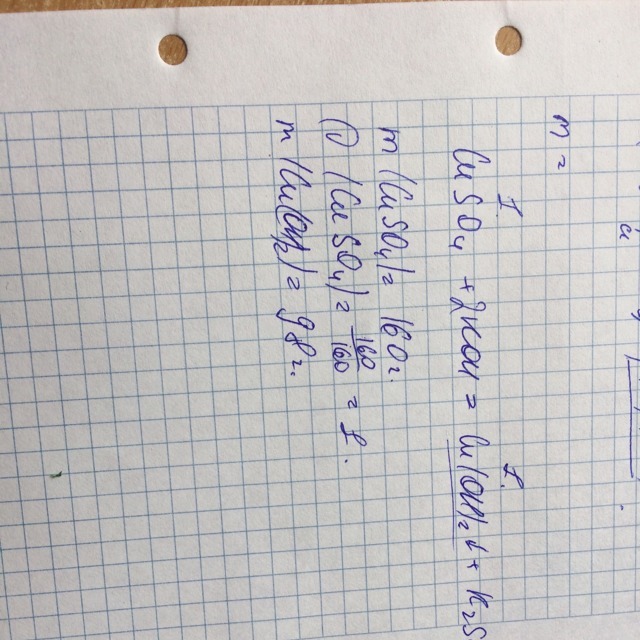 m =
I I.
CuSO₄ + 2KOH = Cu(OH)₂↓ + K₂S
m (CuSO₄) = 160 г.
ν (CuSO₄) = 160/160 = 1.
m (Cu(OH)₂) = 98 г.